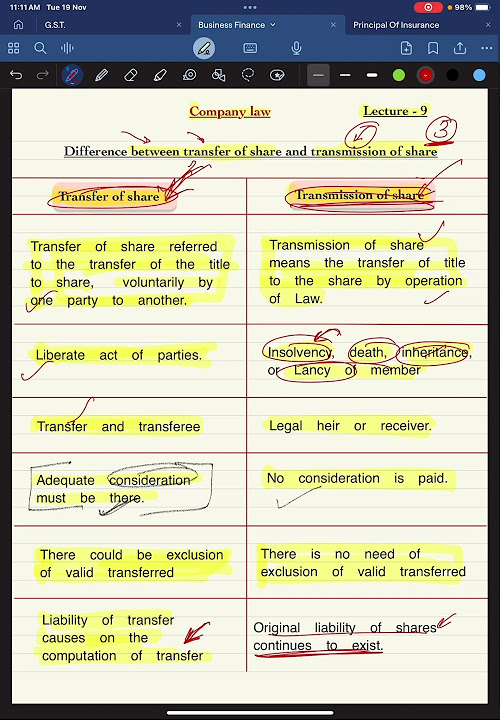 11:11 AM Tue 19 Nov
98%
G.S.T.
Business Finance
Principal Of Insurance
Company law
Lecture - 9
1
3
Difference between transfer of share and transmission of share
Transfer of share
Transmission of share
Transfer of share referred
to the transfer of the title
to share, voluntarily by
one party to another.
Transmission of share
means the transfer of title
to the share by operation
of Law.
Liberate act of parties.
Insolvency, death, inheritance,
or Lancy of member
Transfer and transferee
Legal heir or receiver.
Adequate consideration
must be there.
No consideration is paid.
There could be exclusion
of valid transferred
There is no need of
exclusion of valid transferred
Liability of transfer
causes on the
computation of transfer
Original liability of shares
continues to exist.